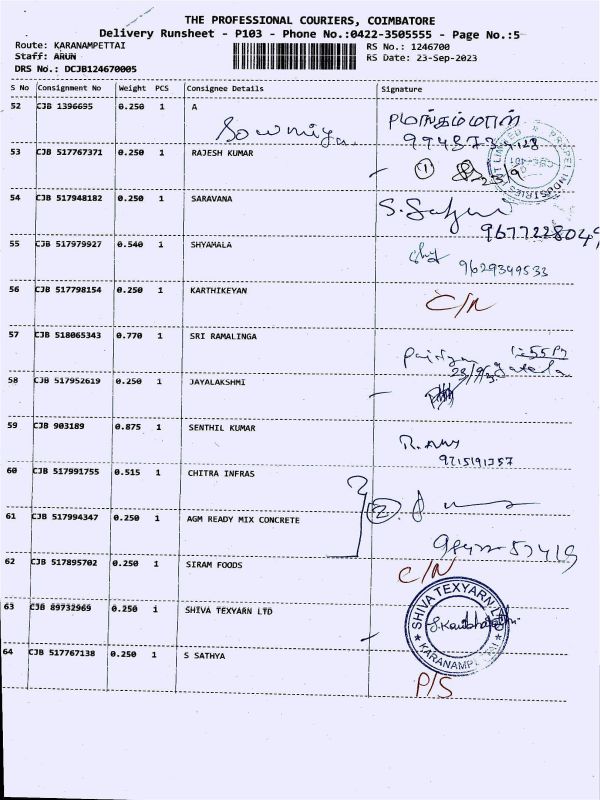 THE PROFESSIONAL COURIERS, COIMBATORE
Delivery Runsheet - P103 - Phone No.:0422-3505555 - Page No.:5
Route: KARANAMPETTAI RS No.: 1246700
Staff: ARUN RS Date: 23-Sep-2023
DRS No.: DCJB124670005
S No Consignment No Weight PCS Consignee Details Signature
52 CJB 1396695 0.250 1 A
Sowmiya.
53 CJB 517767371 0.250 1 RAJESH KUMAR
1 23/9
PROPEL INDUSTRIES LIMITED
54 CJB 517948182 0.250 1 SARAVANA
9677228049
55 CJB 517979927 0.540 1 SHYAMALA
9629349533
56 CJB 517798154 0.250 1 KARTHIKEYAN C/N
57 CJB 518065343 0.770 1 SRI RAMALINGA
1:55
23/9/23
58 CJB 517952619 0.250 1 JAYALAKSHMI
59 CJB 903189 0.875 1 SENTHIL KUMAR
9715191357
60 CJB 517991755 0.515 1 CHITRA INFRAS
2
61 CJB 517994347 0.250 1 AGM READY MIX CONCRETE
62 CJB 517895702 0.250 1 SIRAM FOODS C/N
63 CJB 89732969 0.250 1 SHIVA TEXYARN LTD
SHIVA TEXYARN LTD
KARANAMPETTAI
64 CJB 517767138 0.250 1 S SATHYA
P/S